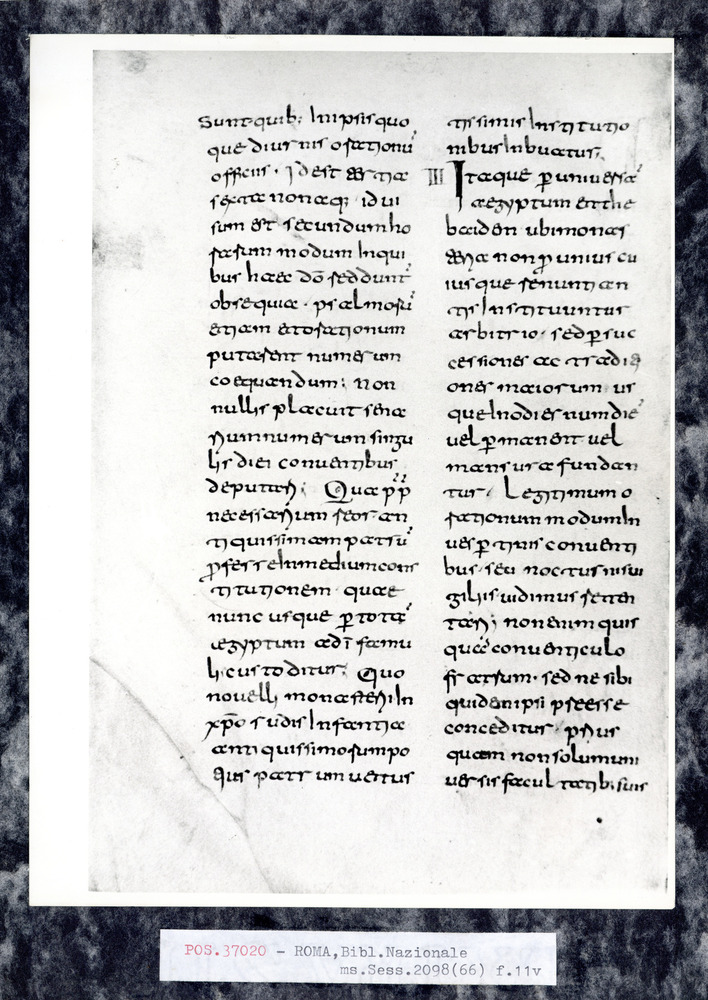 Sunt quib; In ipsis quo
que diurnis orationū
officiis · Id est tertia
sexta nonaq; id ui
sum est secundum ho
rarum modum Inqui
bus haec dō reddunt᷎
obsequia · psalmorū
etiam et orationum
putarent numerum
coequandum; non
nullis placuit sena
rium numerum singu
lis diei conuentibus
deputari; Qua pp
necessarium reor an
tiquissimam patrū
proferre Inmedium cons
titutionem · quae
nunc usque p totā
aegyptum a dī famu
lis custoditur; Quo
nouelli monasterii In
xpō rudis Infantia
antiquissimorum po
tius patrum uetus
tissimis Institutio
nibus Inbuatur;
III Itaque p uniuersā
aegyptum et the
baiden ubi monas
teria non p unius cu
iusque renuntian
tis Instituuntur
arbitrio · sed p suc
cessiones ac traditi
ones maiorum us
que Inodiernum diē
uel p manent uel
mansura fundan
tur · Legitimum o
rationum modum In
uesptinis conuenti
bus · seu nocturnis ui
giliis uidimus reten
tari; non enim quis
quā conuenticulo
fratrum · sed ne sibi
quidem ipsi preesse
conceditur · prius
quam non solum uni
uersis facultatib; suis
POS.37020 - ROMA,Bibl.Nazionale
ms.Sess.2098(66) f.11v